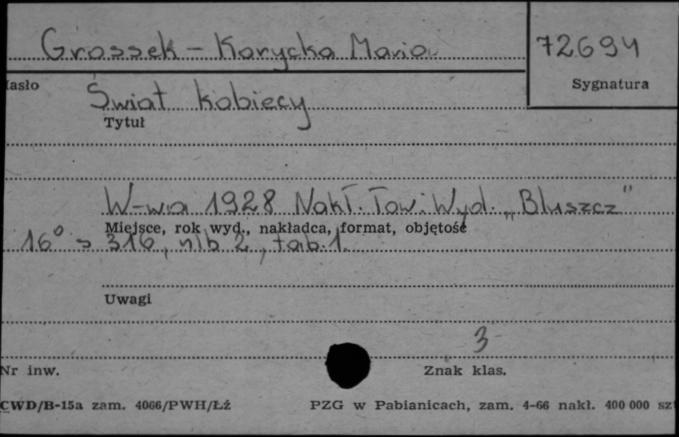 Grossek-Korycka Maria 72694
Hasło Sygnatura
Świat kobiecy
Tytuł
W-wa 1928 Nakł. Tow. Wyd. „Bluszcz"
Miejsce, rok wyd., nakładca, format, objętość
16° s 316, nlb 2, tab. 1.
Uwagi
3
Nr inw. Znak klas.
CWD/B-15a zam. 4066/PWH/Łź PZG w Pabianicach, zam. 4-66 nakł. 400 000 szt